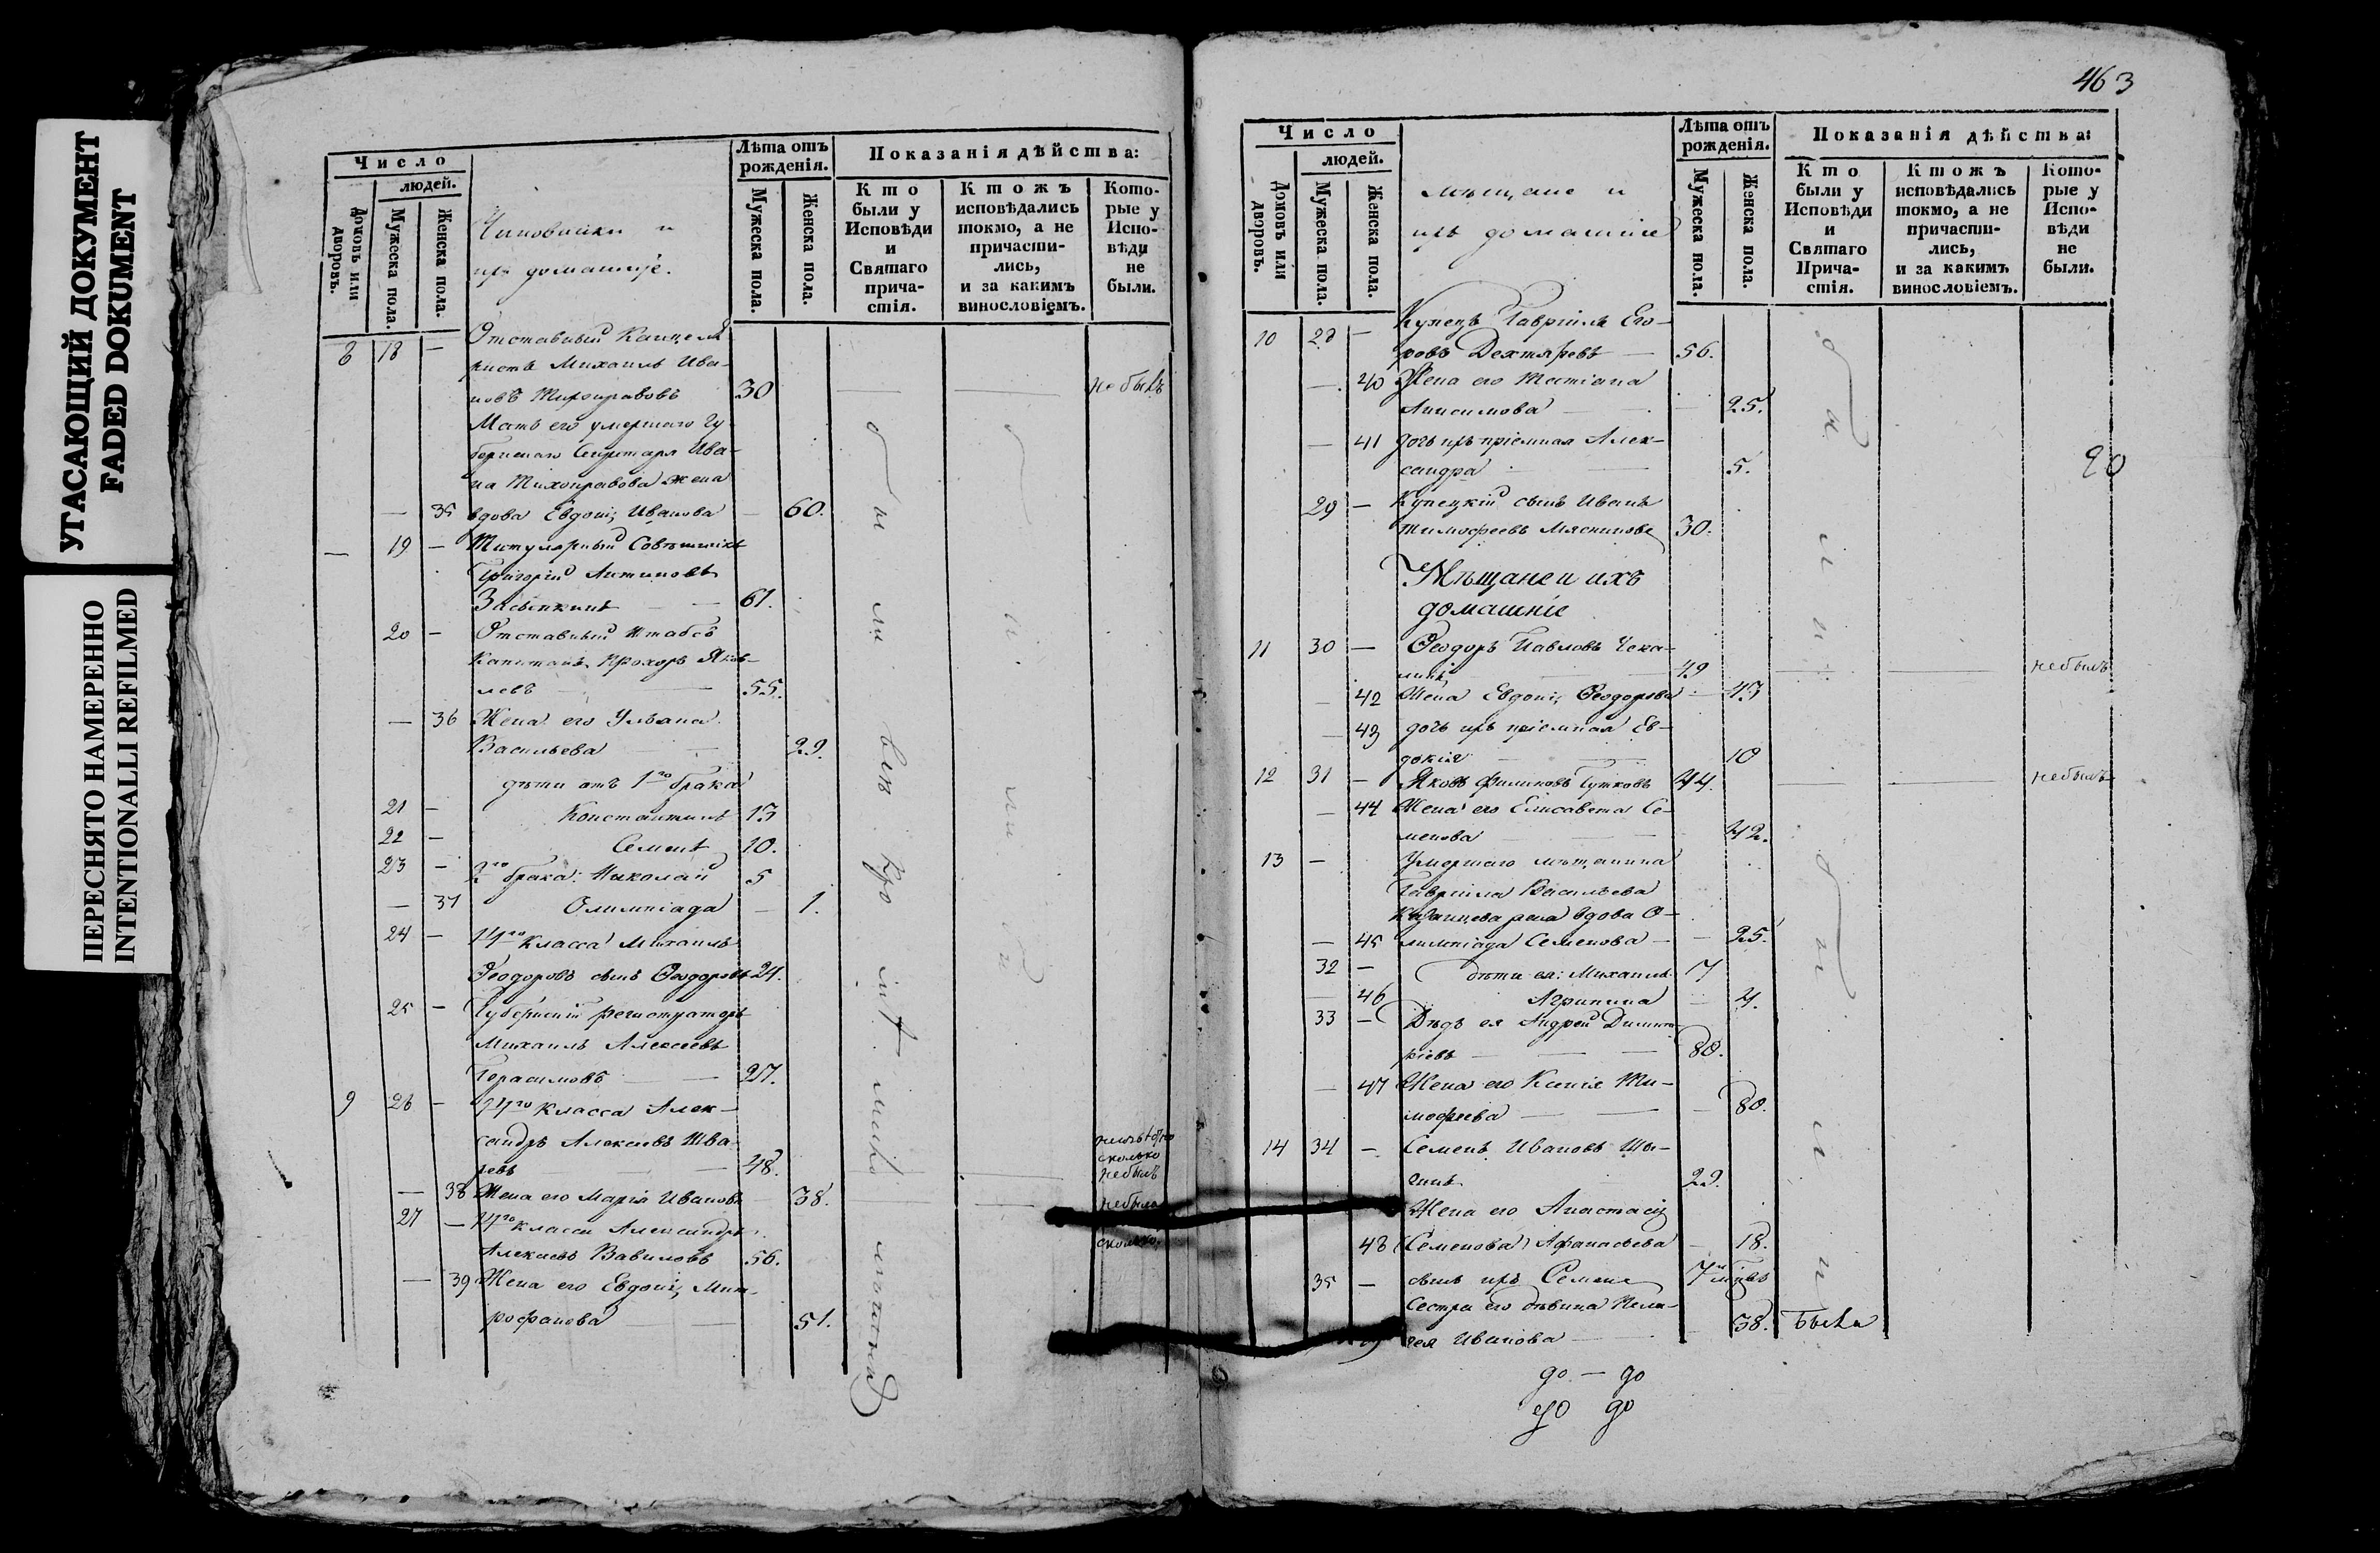 УГАСАЮЩИЙ ДОКУМЕНТ
FADED DOKUMENT
ПЕРЕСНЯТО НАМЕРЕННО
INTENTIONALLI REFILMED
Число
людей.
Домовъ или дворовъ.
Мужеска пола.
Женска пола.
Чиновники и
ихъ домашніе.
Лѣта отъ
рожденія.
Мужеска пола.
Женска пола.
Показанія дѣйства:
Кто
были у
Исповѣди
и
Святаго
прича-
стія.
Ктожъ
исповѣдались
токмо, а не
причасти-
лись,
и за какимъ
винословіемъ.
Кото-
рые у
Испо-
вѣди
не
были.
8 18 — Отставный Канцеля-
ристъ Михаилъ Ива-
новъ Тихонравовъ 30 не былъ
Мать его умершаго Гу-
бернскаго Секретаря Ива-
на Тихонравова жена
— 35 вдова Евдокія Иванова — 60.
— 19 — Титулярный Совѣтникъ
Григорій Антиповъ
Засыпкинъ — 61.
20 — Отставный Штабсъ
Капитанъ Прохоръ Яков-
левъ — 55.
— 36 Жена его Ульяна
Васильева 29.
дѣти отъ 1го брака
21 — Константинъ 13
22 — Семенъ 10.
23 — 2го брака: Николай 5
— 37 Олимпіада — 1.
24 — 14го класса Михаилъ
Ѳеодоровъ сынъ Ѳеодоровъ 24.
25 — Губернскій регистраторъ
Михаилъ Алексеевъ
Герасимовъ — 27.
9 26 — 14го класса Алек-
сандръ Алексѣевъ
— 48. не былъ
— 38 Жена его Марія Иванова 38. не была
27 — 14го класса Александръ
Алексѣевъ Вавиловъ 56.
— 39 Жена его Евдокія Мит-
рофанова — 51.
463
Число
людей.
Домовъ или дворовъ.
Мужеска пола.
Женска пола.
мѣщане и
ихъ домашніе
Лѣта отъ
рожденія.
Мужеска пола.
Женска пола.
Показанія дѣйства:
Кто
были у
Исповѣди
и
Святаго
Прича-
стія.
Ктожъ
исповѣдались
токмо, а не
причасти-
лись,
и за какимъ
винословіемъ.
Кото-
рые у
Испо-
вѣди
не
были.
10 28 — Купецъ Гавріилъ Его-
ровъ Дехтяревъ — 56.
— 40 Жена его Татіана
Анисимова — 25.
— 41 дочь ихъ пріемная Алек-
сандра — 5.
20
29 — Купецкій сынъ Иванъ
Тимофеевъ Мясниковъ 30.
Мѣщане и ихъ
домашніе
11 30 — Ѳеодоръ Павловъ Чека-
49 не былъ
— 42 Жена Евдокія Ѳеодорова — 43
— 43 дочь ихъ пріемная Ев-
докія 10
12 31 — Яковъ Филиповъ 44. не былъ
— 44 Жена его Елисавета Се-
менова — 42.
13 — Умершаго мѣщанина
Гавріила Васильева
Казанцева жена вдова О-
— 45 лимпіада Семенова — 25.
32 — дѣти ея: Михаилъ 7
— 46 Агрипина — 4.
33 — Дѣдъ ея Андрей Димит-
ріевъ — 80.
— 47 Жена его Ксенія Ти-
мофеева — 80.
14 34 — Семенъ Ивановъ
29.
Жена его Анастасія
48 (Семенова) Афанасьева — 18.
35 — сынъ ихъ Семенъ 7
Сестра его дѣвица Пела-
гея Иванова — 38. Была
до — до
до до